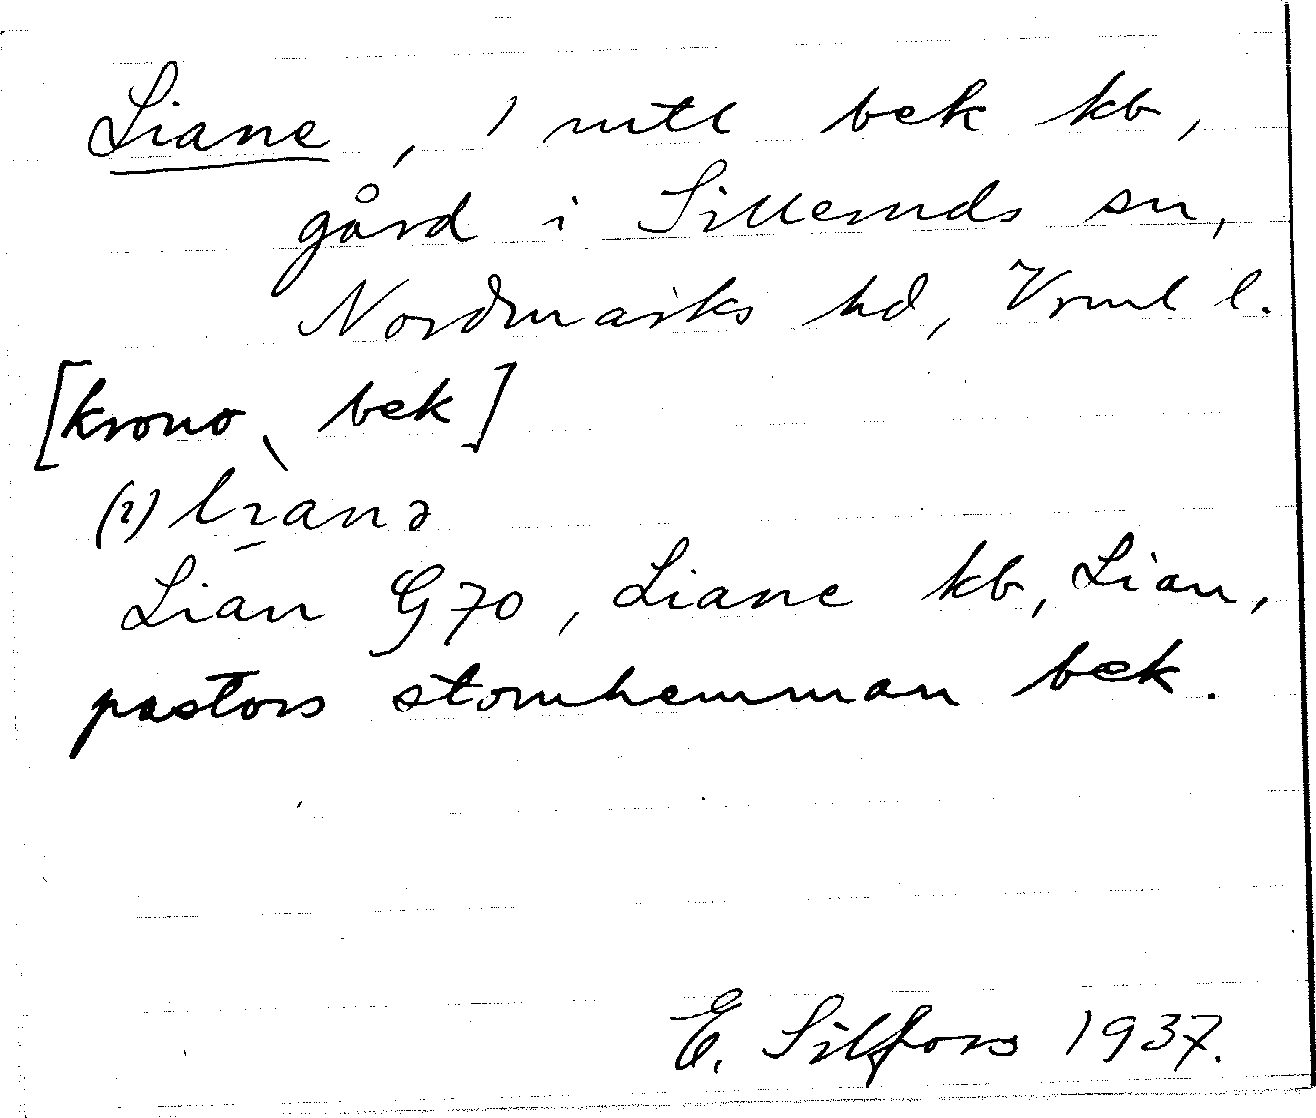 Liane, 1 mtl bek kb,
gård i Silleruds sn,
Nordmarks hd, Vrml l.
[krono, bek]
(1) lɩ̀anə
Lian G70, Liane kb, Lian,
pastors stomhemman bek.
E. Silfors 1937.